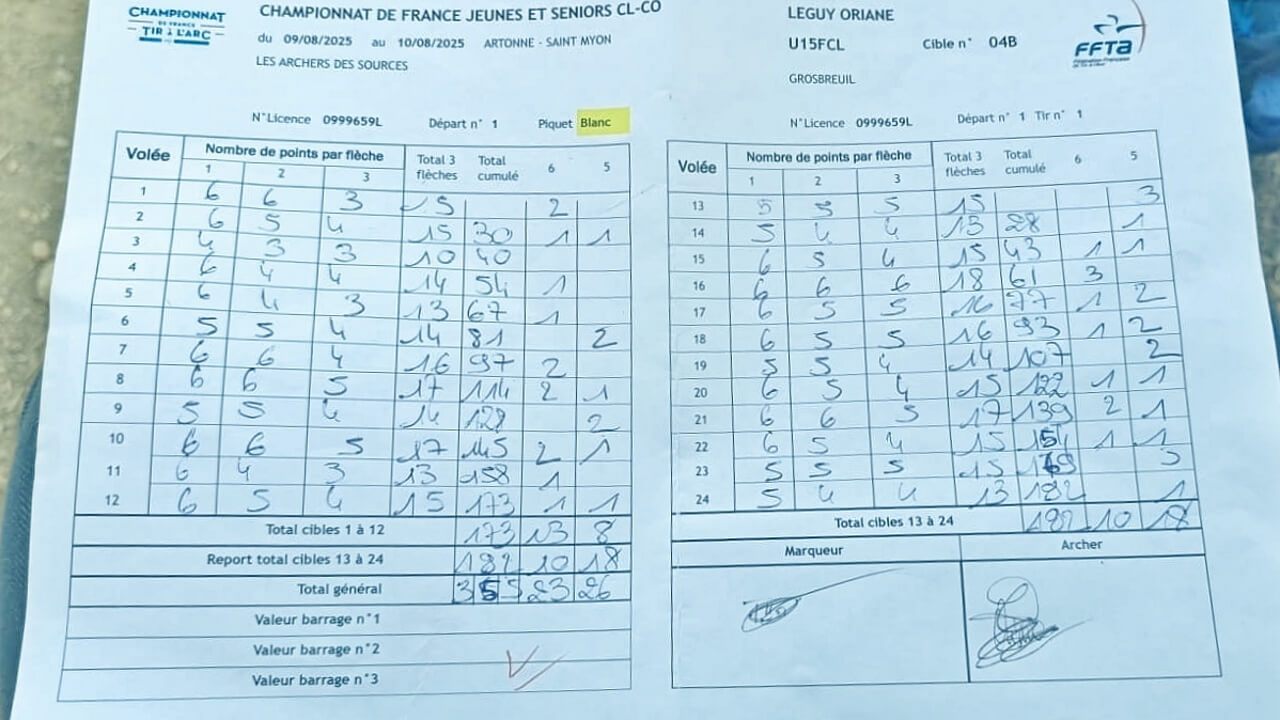 CHAMPIONNAT
DE FRANCE
TIR À L'ARC
CHAMPIONNAT DE FRANCE JEUNES ET SENIORS CL-CO
du 09/08/2025 au 10/08/2025 ARTONNE - SAINT MYON
LES ARCHERS DES SOURCES
N°Licence 0999659L Départ n° 1 Piquet Blanc
Volée Nombre de points par flèche Total 3 flèches Total cumulé 6 5
1 2 3
1 6 6 3 15 2
2 6 5 4 15 30 1 1
3 4 3 3 10 40
4 6 4 4 14 54 1
5 6 4 3 13 67 1
6 5 5 4 14 81 2
7 6 6 4 16 97 2
8 6 6 5 17 114 2 1
9 5 5 4 14 128 2
10 6 6 5 17 145 2 1
11 6 4 3 13 158 1
12 6 5 4 15 173 1 1
Total cibles 1 à 12 173 13 8
Report total cibles 13 à 24 182 10 18
Total général 355 23 26
Valeur barrage n°1
Valeur barrage n°2
Valeur barrage n°3
LEGUY ORIANE
U15FCL Cible n° 04B
GROSBREUIL
FFTA
N°Licence 0999659L Départ n° 1 Tir n° 1
Volée Nombre de points par flèche Total 3 flèches Total cumulé 6 5
1 2 3
13 5 5 5 15 3
14 5 4 4 13 28 1
15 6 5 4 15 43 1 1
16 6 6 6 18 61 3
17 6 5 5 16 77 1 2
18 6 5 5 16 93 1 2
19 5 5 4 14 107 2
20 6 5 4 15 122 1 1
21 6 6 5 17 139 2 1
22 6 5 4 15 154 1 1
23 5 5 5 15 169 3
24 5 4 4 13 182 1
Total cibles 13 à 24 182 10 18
Marqueur Archer